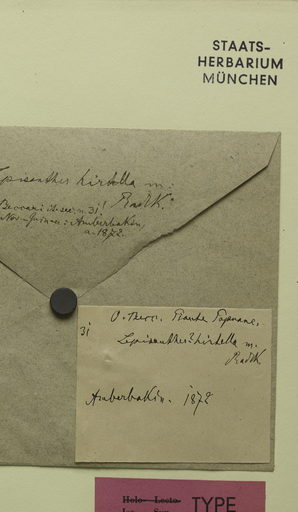 STAATS-
HERBARIUM
MÜNCHEN
Lepisanthes hirtella m.
Radlk.
Beccari it. secun. 31!
Nov. Guinea: Amberbakin,
a. 1872.
31 O. Becc. Piante Papuane.
Lepisanthes? hirtella m.
Radlk
Amberbakin. 1872
Holo- Lecto-
TYPE